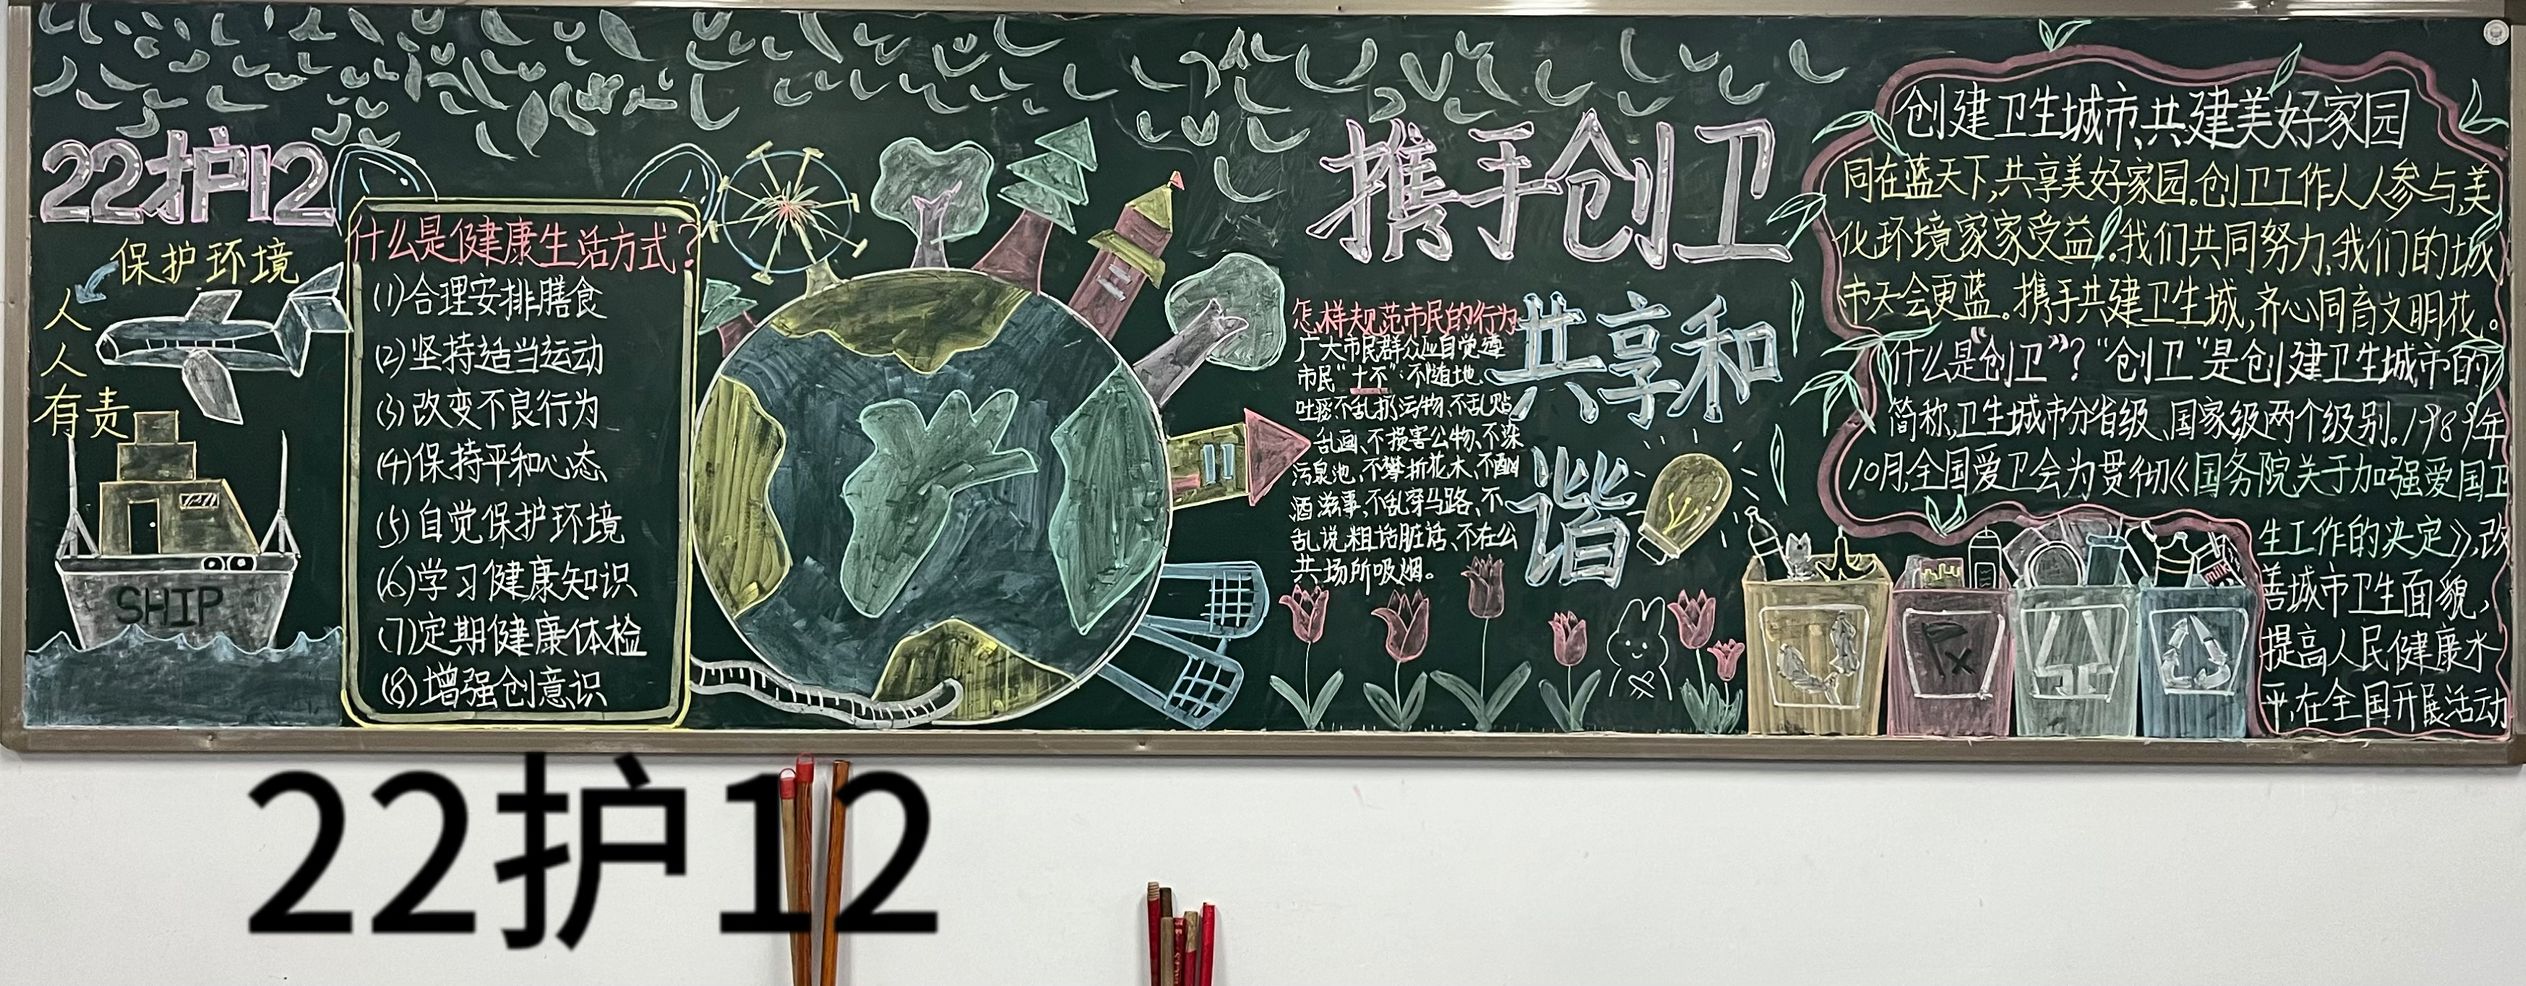 22护12
保护环境
人
人
有责
SHIP
什么是健康生活方式?
(1)合理安排膳食
(2)坚持适当运动
(3)改变不良行为
(4)保持平和心态
(5)自觉保护环境
(6)学习健康知识
(7)定期健康体检
(8)增强创意识
携手创卫
共享和
谐
怎样规范市民的行为
广大市民群众应自觉遵
市民“十不”:不随地
吐痰不乱扔污物、不乱贴
乱画、不损害公物、不深
污泉池、不攀折花木、不酗
酒滋事、不乱穿马路、不
乱说粗话脏话、不在公
共场所吸烟。
创建卫生城市、共建美好家园
同在蓝天下,共享美好家园。创卫工作人人参与,美
化环境家家受益!我们共同努力,我们的城
市天会更蓝。携手共建卫生城,齐心同育文明花。
什么是“创卫”?“创卫”是创建卫生城市的
简称,卫生城市分省级、国家级两个级别。1989年
10月,全国爱卫会为贯彻《国务院关于加强爱国卫
生工作的决定》,改
善城市卫生面貌,
提高人民健康水
平,在全国开展活动
Rx
22护12